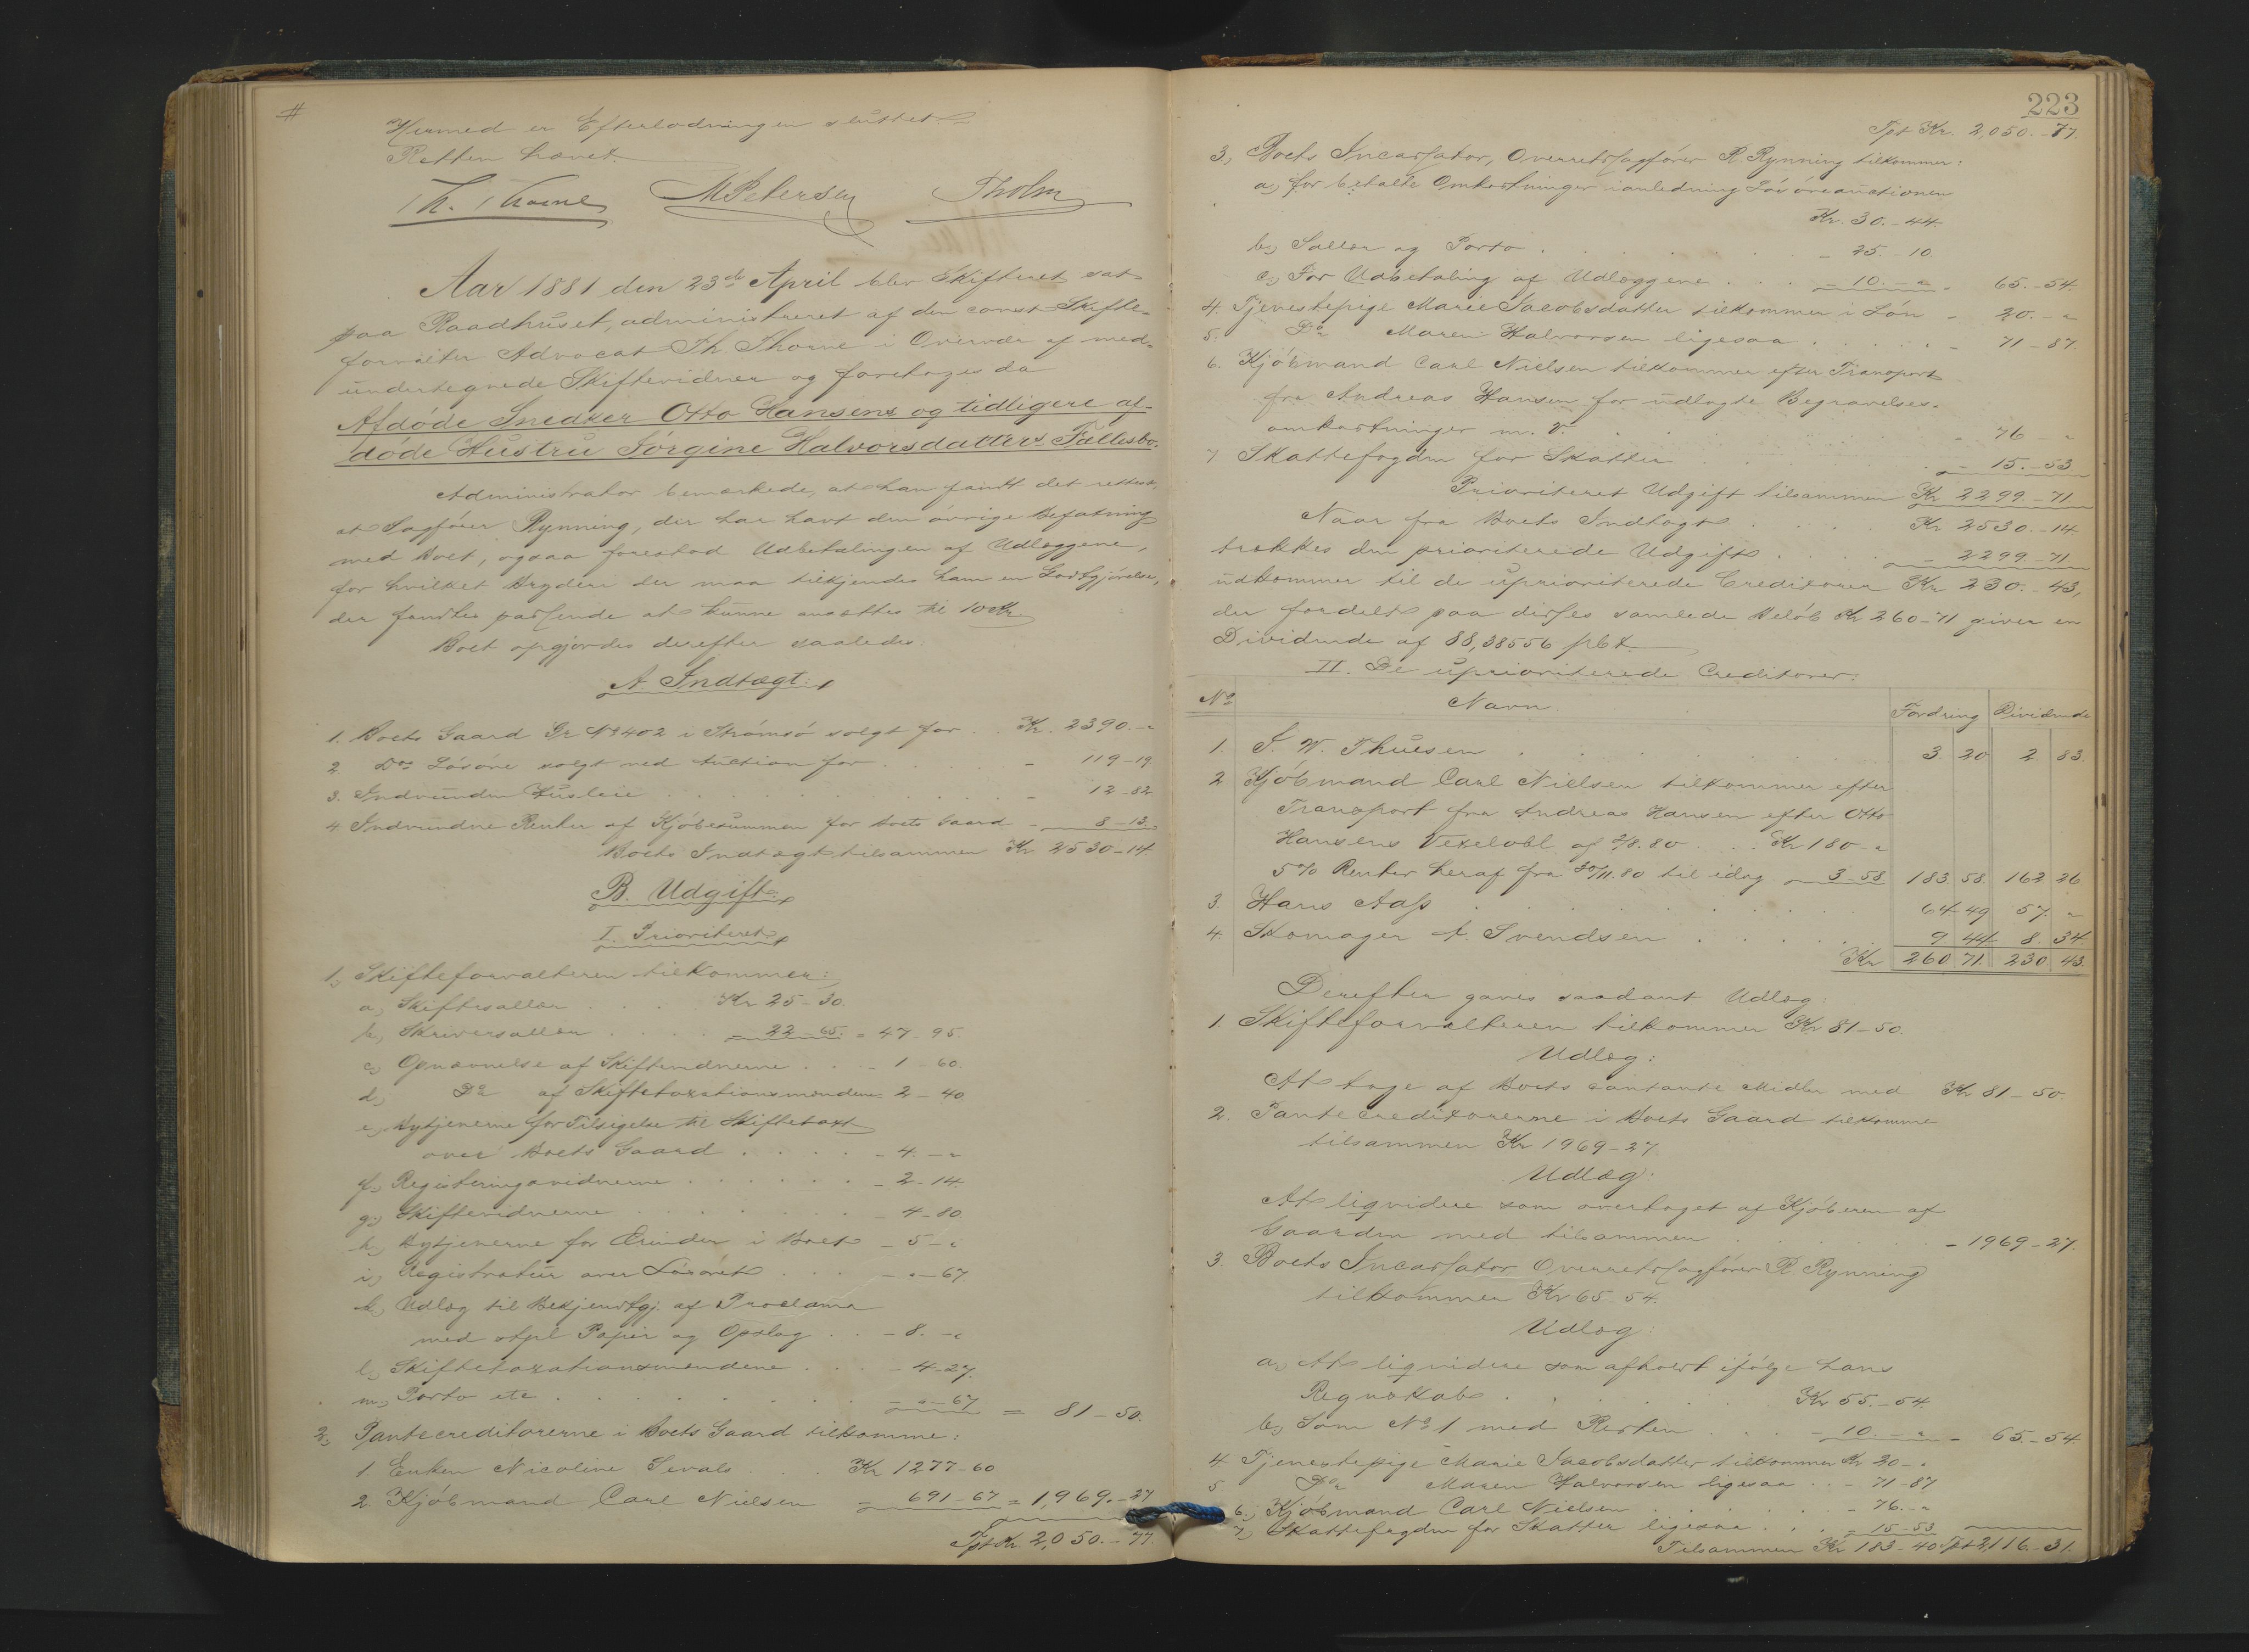 #
Hermed er Efterlodningen sluttet.
Retten hævet.
Th. Thorne M Petersen Tholm
Aar 1881 den 23de April blev Skifteret sat
paa Raadhuset, administreret af den const Skifte-
forvalter Advocat Th Thorne i Overvær af med-
undertegnede Skiftevidner og foretoges da
Afdøde Snedker Otto Hansens og tidligere af-
døde Hustru Jørgine Halvorsdatters Fællesbo.
Administrator bemærkede, at han fandt det rettest,
at Sagfører Rynning, der har havt den øvrige Befatning
med Boet, ogsaa forestod Udbetalingen af Udlæggene,
for hvilket Bryderi der maa tilkjendes ham en Godtgjørelse,
der fandtes passende at kunne ansættes til 10 Kr
Boet opgjordes derefter saaledes:
A. Indtægt:
1. Boets Gaard Gr No 402 i Strømsø solgt for . . Kr. 2390.-"
2. Dos Løsøre solgt ved Auction for . . . . - 119-19
3. Indvunden Husleie . . . . - 12-82
4 Indvundne Renter af Kjøbesummen for Boets Gaard - 8-13
Boets Indtægt tilsammen Kr 2530-14.
B. Udgift:
I. Prioriteret
1, Skifteforvalteren tilkommer:
a, Skiftesallær . . . Kr 25-30.
b, Skriversallær . . . - 22-65. = 47-95.
c, Opnævnelse af Skiftevidnerne . . - 1-60.
d, Do af Skiftetaxationsmændene - 2-40
e, Bytjenerne for Tilsigelse til Skiftetaxt
over Boets Gaard . . . . - 4.-"
f, Registeringsvidnerne . . . . - 2-14.
g, Skiftevidnerne . . . . - 4-80.
h, Bytjenerne for Ærinder i Boet - 5-"
i, Registratur over Løsøret . . . - "-67.
k, Udlæg til Bekjendtgj. af Proclama
med stpl Papir og Opslag . . - 8.-"
l, Skiftetaxationsmændene . . . - 4-27.
m, Porto etc . . . . - "-67 = 81-50.
2, Pantecreditorerne i Boets Gaard tilkomme:
1. Enken Nicoline Sevals . . . Kr 1277-60
2. Kjøbmand Carl Nielsen = 691-67 = 1,969.-27
Tpt Kr. 2,050.-77.
223
Tpt Kr. 2,050.-77.
3, Boets Incassator, Overretssagfører R. Rynning tilkommer:
a, for betalte Omkostninger i anledning Løsøreauctionen
Kr. 30.-44.
b, Sallær og Porto . . . . - 25.-10.
c, For Udbetaling af Udlæggene . . . - 10.-" - 65.-54.
4. Tjenestepige Marie Jacobsdatter tilkommer i Løn - 20.-"
5. Do Maren Halvorsen ligesaa . . . . - 71-87.
6. Kjøbmand Carl Nielsen tilkommer efter Transport
fra Andreas Hansen for udlagte Begravelses-
omkostninger m. v. . . . . - 76-"
7 Skattefogden for Skatter . . . . - 15.-53
Prioriteret Udgift tilsammen Kr 2299.-71
Naar fra Boets Indtægt . . . Kr 2530.-14.
trækkes den prioriterede Udgift . . . - 2299-71
udkommer til de uprioriterede Creditorer Kr 230.-43,
der fordelt paa disses samlede Beløb Kr 260-71 giver en
Dividende af 88,38556 pCt.
II. De uprioriterede Creditorer.
No Navn Fordring Dividende
1. J. W. Thuesen . . . . 3 20 2. 83.
2 Kjøbmand Carl Nielsen tilkommer efter
Transport fra Andreas Hansen efter Otto
Hansens Vexelobl af 2/8.80 . . Kr 180-"
5% Renter heraf fra 30/11.80 til idag - 3-58 183. 58. 162 26
3. Hans Aass . . . . 64 49 57. "
4. Skomager A. Svendsen . . . . 9 44 8. 34.
Kr 260 71. 230 43.
Derefter gaves saadant Udlæg:
1. Skifteforvalteren tilkommer Kr 81-50.
Udlæg:
At tage af Boets contante Midler med Kr 81-50.
2. Pantecreditorerne i Boets Gaard tilkomme
tilsammen Kr 1969-27.
Udlæg:
At liqvidere som overtaget af Kjøberen af
Gaarden med tilsammen . . . . - 1969-27.
3. Boets Incassator Overretssagfører R. Rynning
tilkommer Kr 65-54.
Udlæg:
a, At liqvidere som afholdt ifølge hans
Regnskab . . . . Kr 55.-54.
b, Som No 1 med Resten . . . - 10.-" - 65.-54.
4 Tjenestepige Marie Jacobsdatter tilkommer Kr 20-"
5 Do Maren Halvorsen ligesaa . . - 71-87
6, Kjøbmand Carl Nielsen . . . . - 76.-"
7, Skattefogden for Skatter ligesaa . . . - 15-53
Tilsammen Kr 183-40 Tpt 2,116-31.